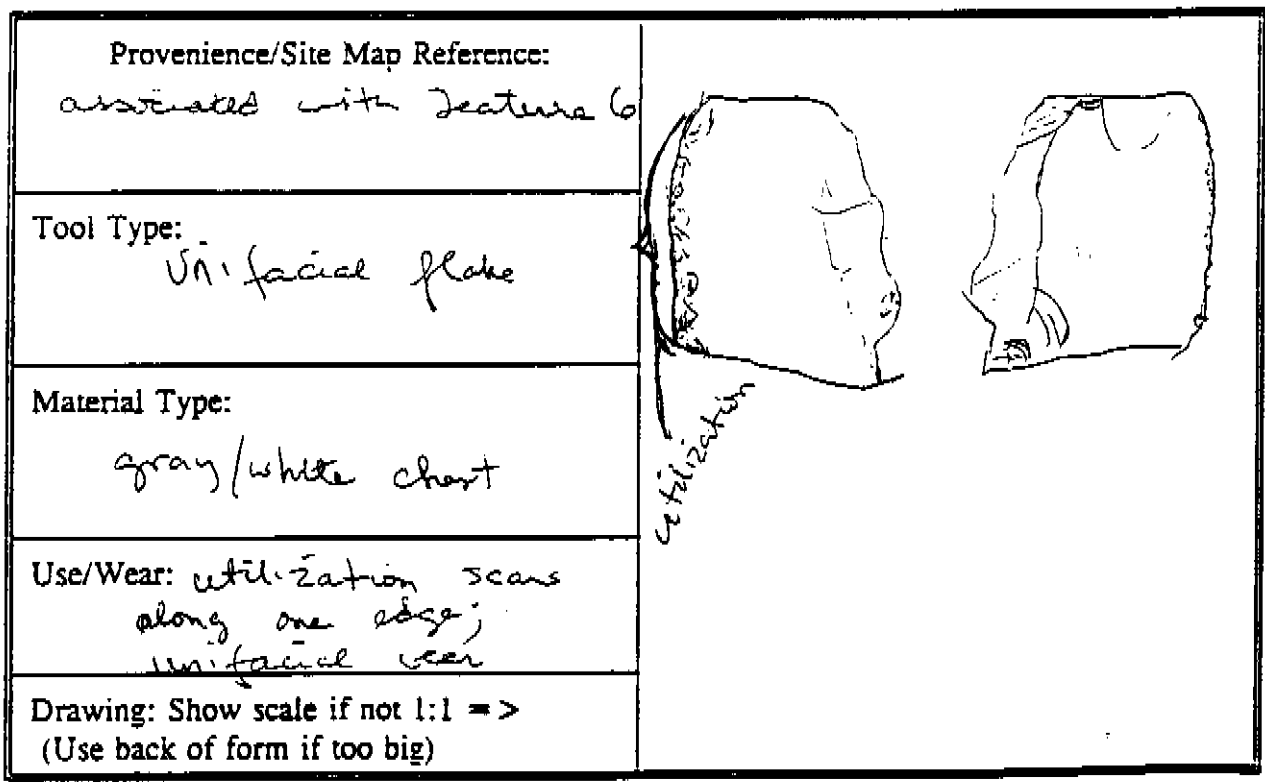 Provenience/Site Map Reference:
associated with Feature 6
Tool Type:
Unifacial flake
Material Type:
gray/white chert
Use/Wear: utilization scars
along one edge;
unifacial wear
Drawing: Show scale if not 1:1 = >
(Use back of form if too big)
utilization